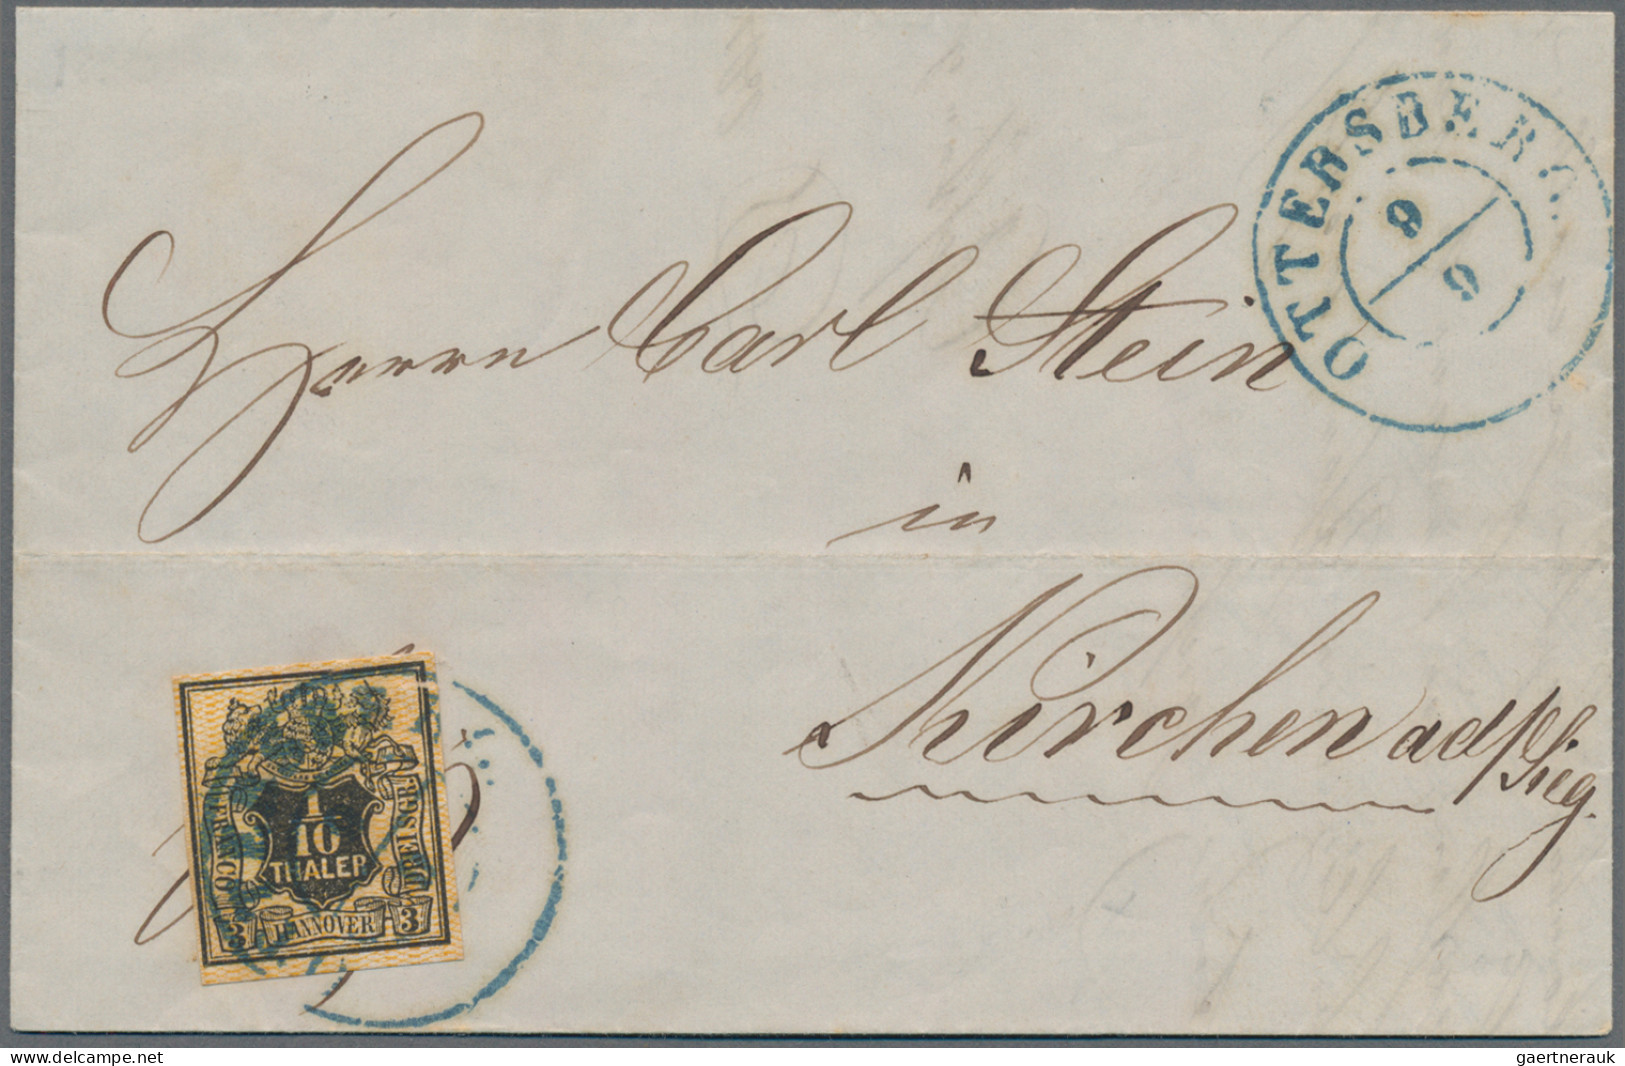 OTTERSBERG
9
9
Herrn Carl Stein
in
Kirchen ad/Sieg.
FRANCO
1
10
THALER
DREI SGR.
3 HANNOVER 3
www.delcampe.net
gaertnerauk